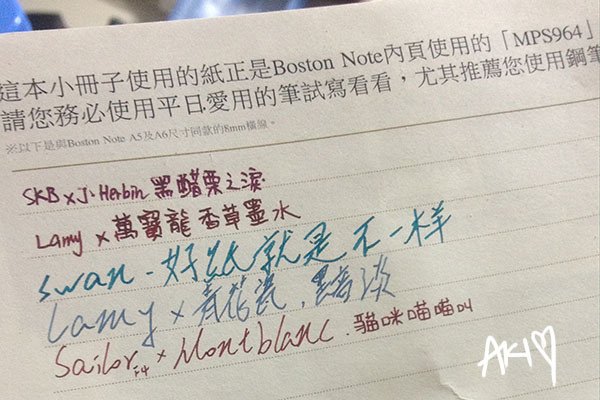 這本小冊子使用的紙正是Boston Note內頁使用的「MPS964」
請您務必使用平日愛用的筆試寫看看，尤其推薦您使用鋼筆
※以下是與Boston Note A5及A6尺寸同款的8mm橫線。
SKB x J. Herbin 黑醋栗之淚
Lamy x 萬寶龍 香草墨水
Swan. 好紙就是不一样
Lamy x 青花瓷.墨淡
Sailor F4 x Montblanc. 貓咪喵喵叫
AKI♡